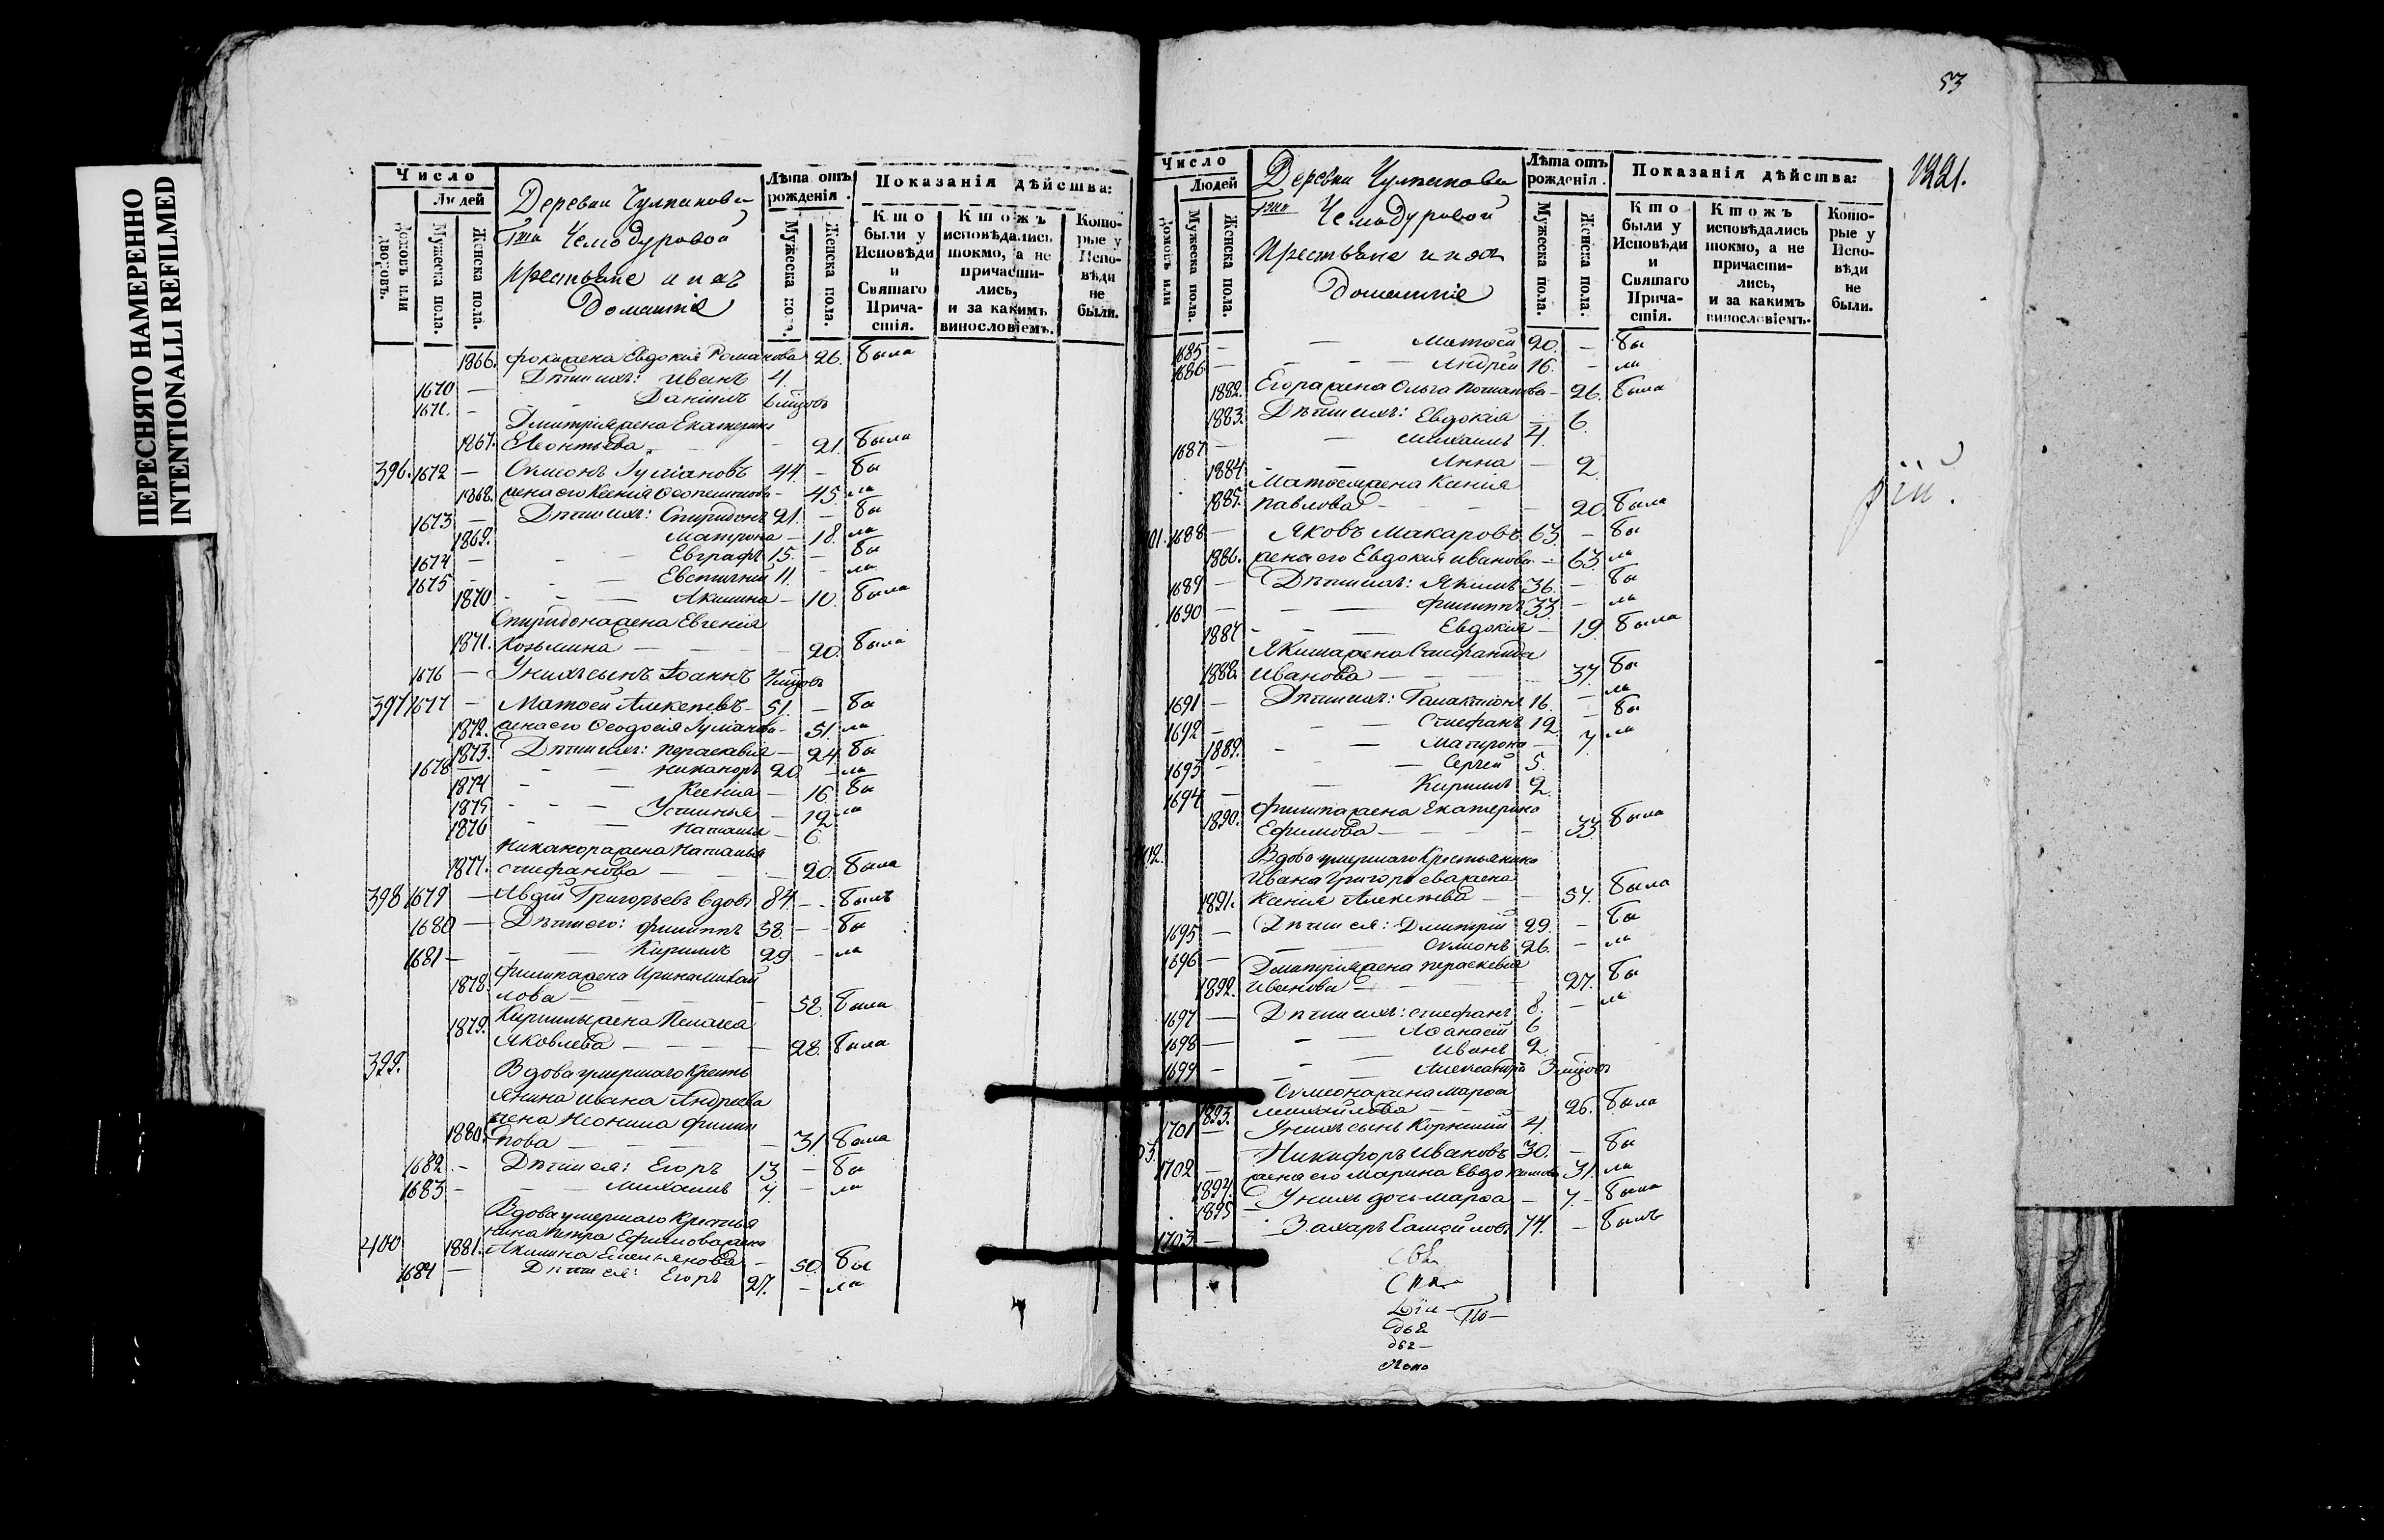 ПЕРЕСНЯТО НАМЕРЕННО
INTENTIONALLI REFILMED
Число
Людей
Домовъ или дворовъ.
Мужеска пола.
Женска пола.
Деревни Чулпановки
Чемодуровой
крестьяне и ихъ
Домашніе
Лѣта отъ рожденія.
Мужеска пола.
Женска пола.
Показанія дѣйства:
Кто были у Исповѣди и Святаго Причастія.
Ктожъ исповѣдались токмо, а не причастились, и за какимъ винословіемъ.
Которые у Исповѣди не были.
1866. Фомы жена Евдокия Романова 26. была
1670 — Дѣти ихъ: Иванъ 4.
1671. — Даніилъ
Дмитрия жена Екатерина
1867. Леонтьева 21. была
396. 1672 — Симіонъ 44. — бы
1868. жена его Ксения — 45. ла
1673 — Дѣти ихъ: Спиридонъ 21. — бы
1869. Матрона — 18. ла
1674 — Евграфъ 15. — бы
1675 — Евстигней 11. — ла
1870 Акилина — 10. была
Спиридона жена Евгения
1871. Козьмина — 20. была
1676 — У нихъ сынъ Іоаннъ
397 1677 — Матѳей Алексѣевъ 51. — бы
1872. жена его Ѳеодосія — 51. ла
1873. Дѣти ихъ: Параскевия — 24. бы
1678 — Никаноръ 20. — ла
1874 Ксения — 16. бы
1875 Устинья — 12. ла
1876 Наталья — 6.
Никанора жена Наталья
1877. Стефанова — 20. была
398 1679 — Авдій Григорьевъ вдовъ 84. — былъ
1680 — Дѣти его: Филиппъ 58. — бы
1681 — Кирилъ 29 — ла
1878. Филипа жена Ирина Михай
лова — 58. была
1879. Кирилы жена Пелагея
Яковлева — 28. была
399. Вдова умершаго Кресть
янина Ивана Андреева
жена Неонила Филип
1880. пова — 31. была
1682. — Дѣти ея: Егоръ 13 — бы
1683 — Михаилъ 7. — ла
Вдова умершаго Крестья
нина Петра Ефимова жена
400 1881. Акилина Емельянова — 50. бы
1684 — Дѣти ея: Егоръ 27. — ла
53
1821.
Число
Людей
Домовъ или
Мужеска пола.
Женска пола.
Деревни Чулпановки
Чемодуровой
Крестьяне и ихъ
домашніе
Лѣта отъ рожденія.
Мужеска пола.
Женска пола.
Показанія дѣйства:
Кто были у Исповѣди и Святаго Причастія.
Ктожъ исповѣдались токмо, а не причастились, и за какимъ винословіемъ.
Которые у Исповѣди не были.
1685 — Матѳей 20. — бы
1686 — Андрей 16. — ла
1882. Егора жена Ольга — 26. была
1883. Дѣти ихъ: Евдокія — 6.
1687 — Михаилъ 4.
1884. Анна — 2.
Матѳея жена Ксения
1885. Павлова — 20. была
401. 1688 — Яковъ Макаровъ 63. — бы
1886. жена его Евдокия Иванова — 63. ла
1689 — Дѣти ихъ: Якимъ 36. — бы
1690 — Филиппъ 33. — ла
1887 Евдокия — 19. была
Якима жена Стефанида
1888. Иванова — 37. бы
1691 — Дѣти ихъ: Галактіонъ 16. — ла
1692 — Стефанъ 12. — бы
1889. Матрона — 7. ла
1693 — Сергей 5.
1694 — Кирилъ 2.
Филипа жена Екатерина
1890. Ефимова — 33. была
402. Вдова умершаго Крестьянина
Ивана Григорьева жена
1891. Ксения Алексѣева — 57. была
1695 — Дѣти ея: Дмитрій 29. — бы
1696 — Симіонъ 26. — ла
Дмитрия жена Параскевия
1892. Иванова — 27. бы
1697 — Дѣти ихъ: Стефанъ 8. — ла
1698 — Аѳанасій 6
1699 — Иванъ 2.
Александръ
Симеона жена Марѳа
1893. Михайлова — 26. была
1701 — У нихъ сынъ Корнилий 4.
1702 — Никифоръ Ивановъ 30. — бы
1894. жена его Марина Евдокимова 31. ла
1895 У нихъ дочь Марѳа — 7. была
1703 — Захаръ Самойловъ 74. — былъ